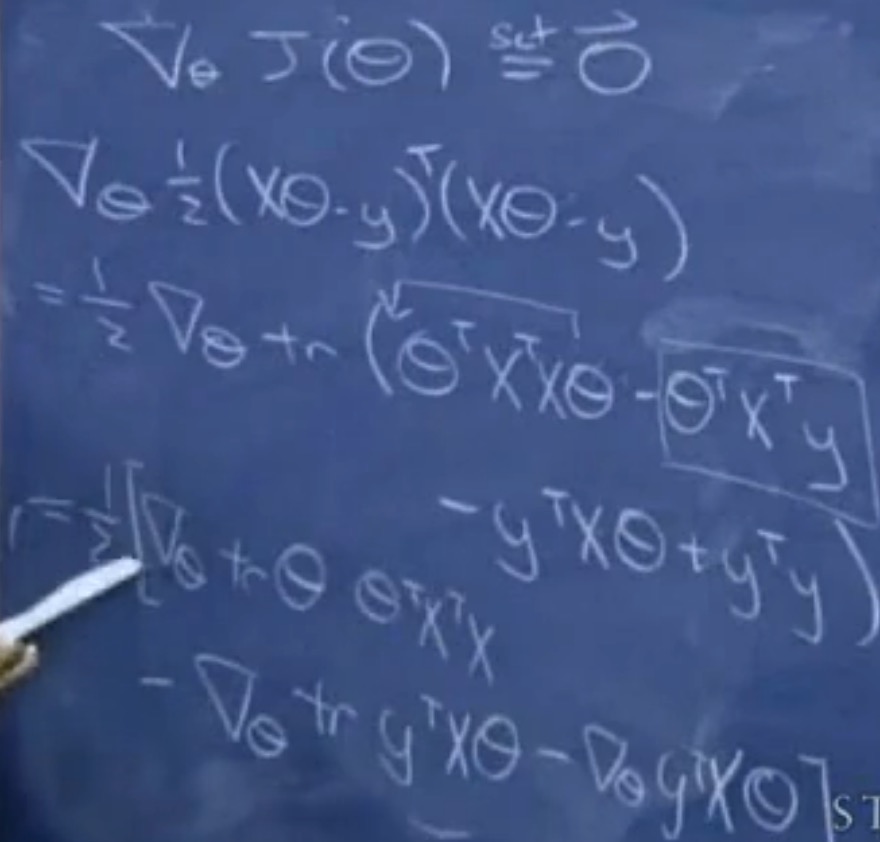 ∇_θ J(θ) set= 0⃗
∇_θ ½(Xθ-y)ᵀ(Xθ-y)
= ½ ∇_θ tr (θᵀXᵀXθ - θᵀXᵀy
- yᵀXθ + yᵀy)
= ½[∇_θ tr θ θᵀXᵀX
- ∇_θ tr yᵀXθ - ∇_θ yᵀXθ]
ST